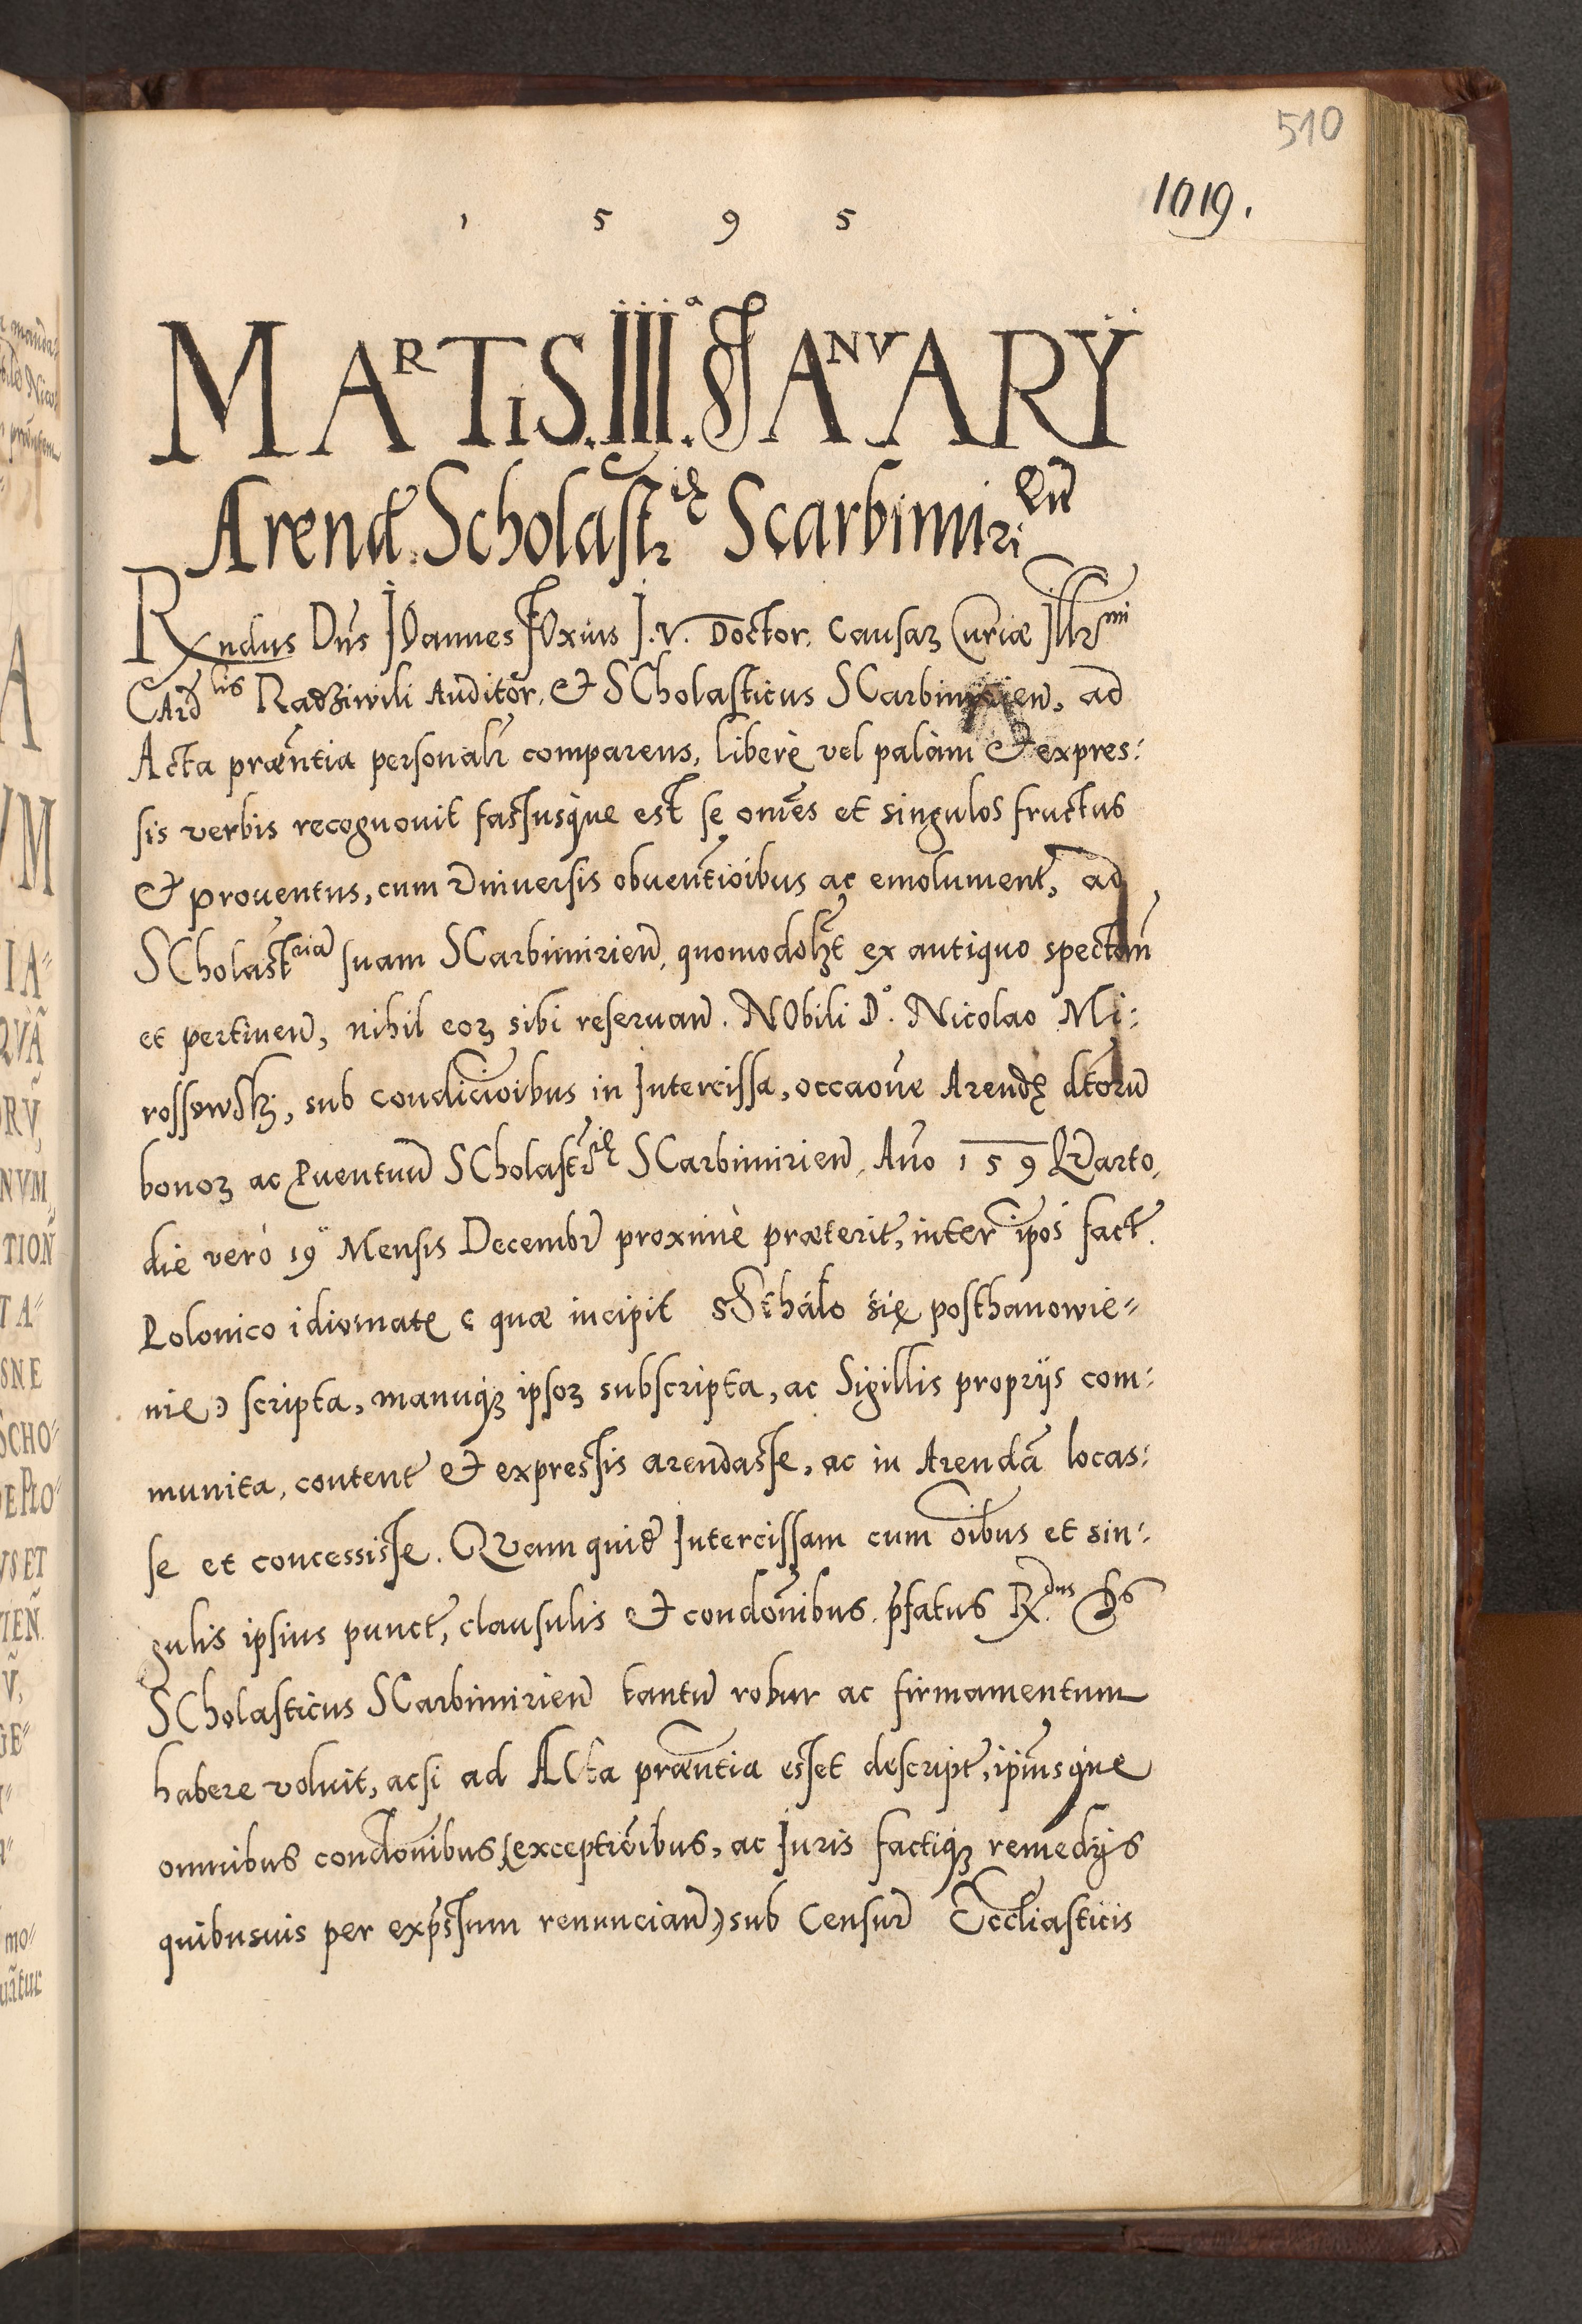 510
1019.
1 5 9 5
MARTiS. III.ª JANVARY
Arendæ. Scholastrię Scarbimiriēn
Rxndus Dn̄s IOannes FOxius I. V. Doctor. causaꝝ Curiæ Illrmi
CArdlis Radziwili Auditor. et SCholasticus SCarbimirien̄, ad
Acta præn̄tia personalr comparens, liberè vel palàm et expres:
sis verbis recognouit fassusq́ue est se om̄es et singulos fructus
et prouentus, cum Vniuersis obuentio̅ibus ac emolument, ad
SCholastriam suam SCarbimirien̄, quomodolꝫt ex antiquo spectan̄
et pertinen̄, nihil eoꝝ sibi reseruan̄. NObili D°. Nicolao Mi:
rossowskj, sub condicio̅ibus in Intercissa, occao̅ne Arendę dtorū
bonoꝝ ac ꝓuentuū SCholastrię SCarbimirien̄, An̄o 159 QVarto,
die verò 19 Mensis Decembr proximè præterit, inter ip̄os fact.
Polonico idiomatę ( quæ incipit SSthálo się posthanowie=
nię) scripta, manuqꝫ ipsoꝝ subscripta, ac Sigillis proprijs com:
munita, content et expressis arendasse, ac in Arendā locas:
se et concessisse. QVam quid Intercissam cum o̅ibus et sin:
gulis ipsius punct, clausulis et condo̅nibus. p̄fatus Rx.dus Ds
SCholasticus SCarbimirien̄ tantū robur ac firmamentum
habere voluit, acsi ad ACta præn̄tia esset descript, ip̄iusq́ue
omnibus condo̅nibus (exceptio̅ibus, ac Iuris factiqꝫ remedijs
quibusuis per exp̄ssum renuncian̄) sub Censur Eccl̄iasticis